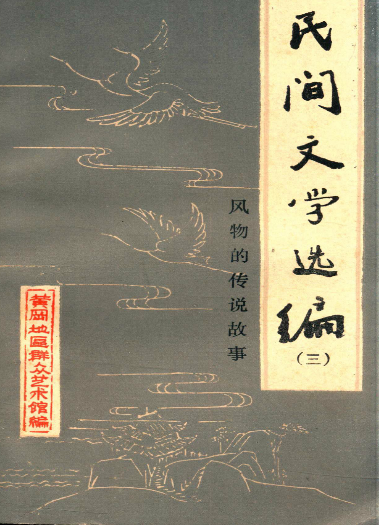 民间文学选编
(三)
风物的传说故事
黄冈地区群众艺术馆编